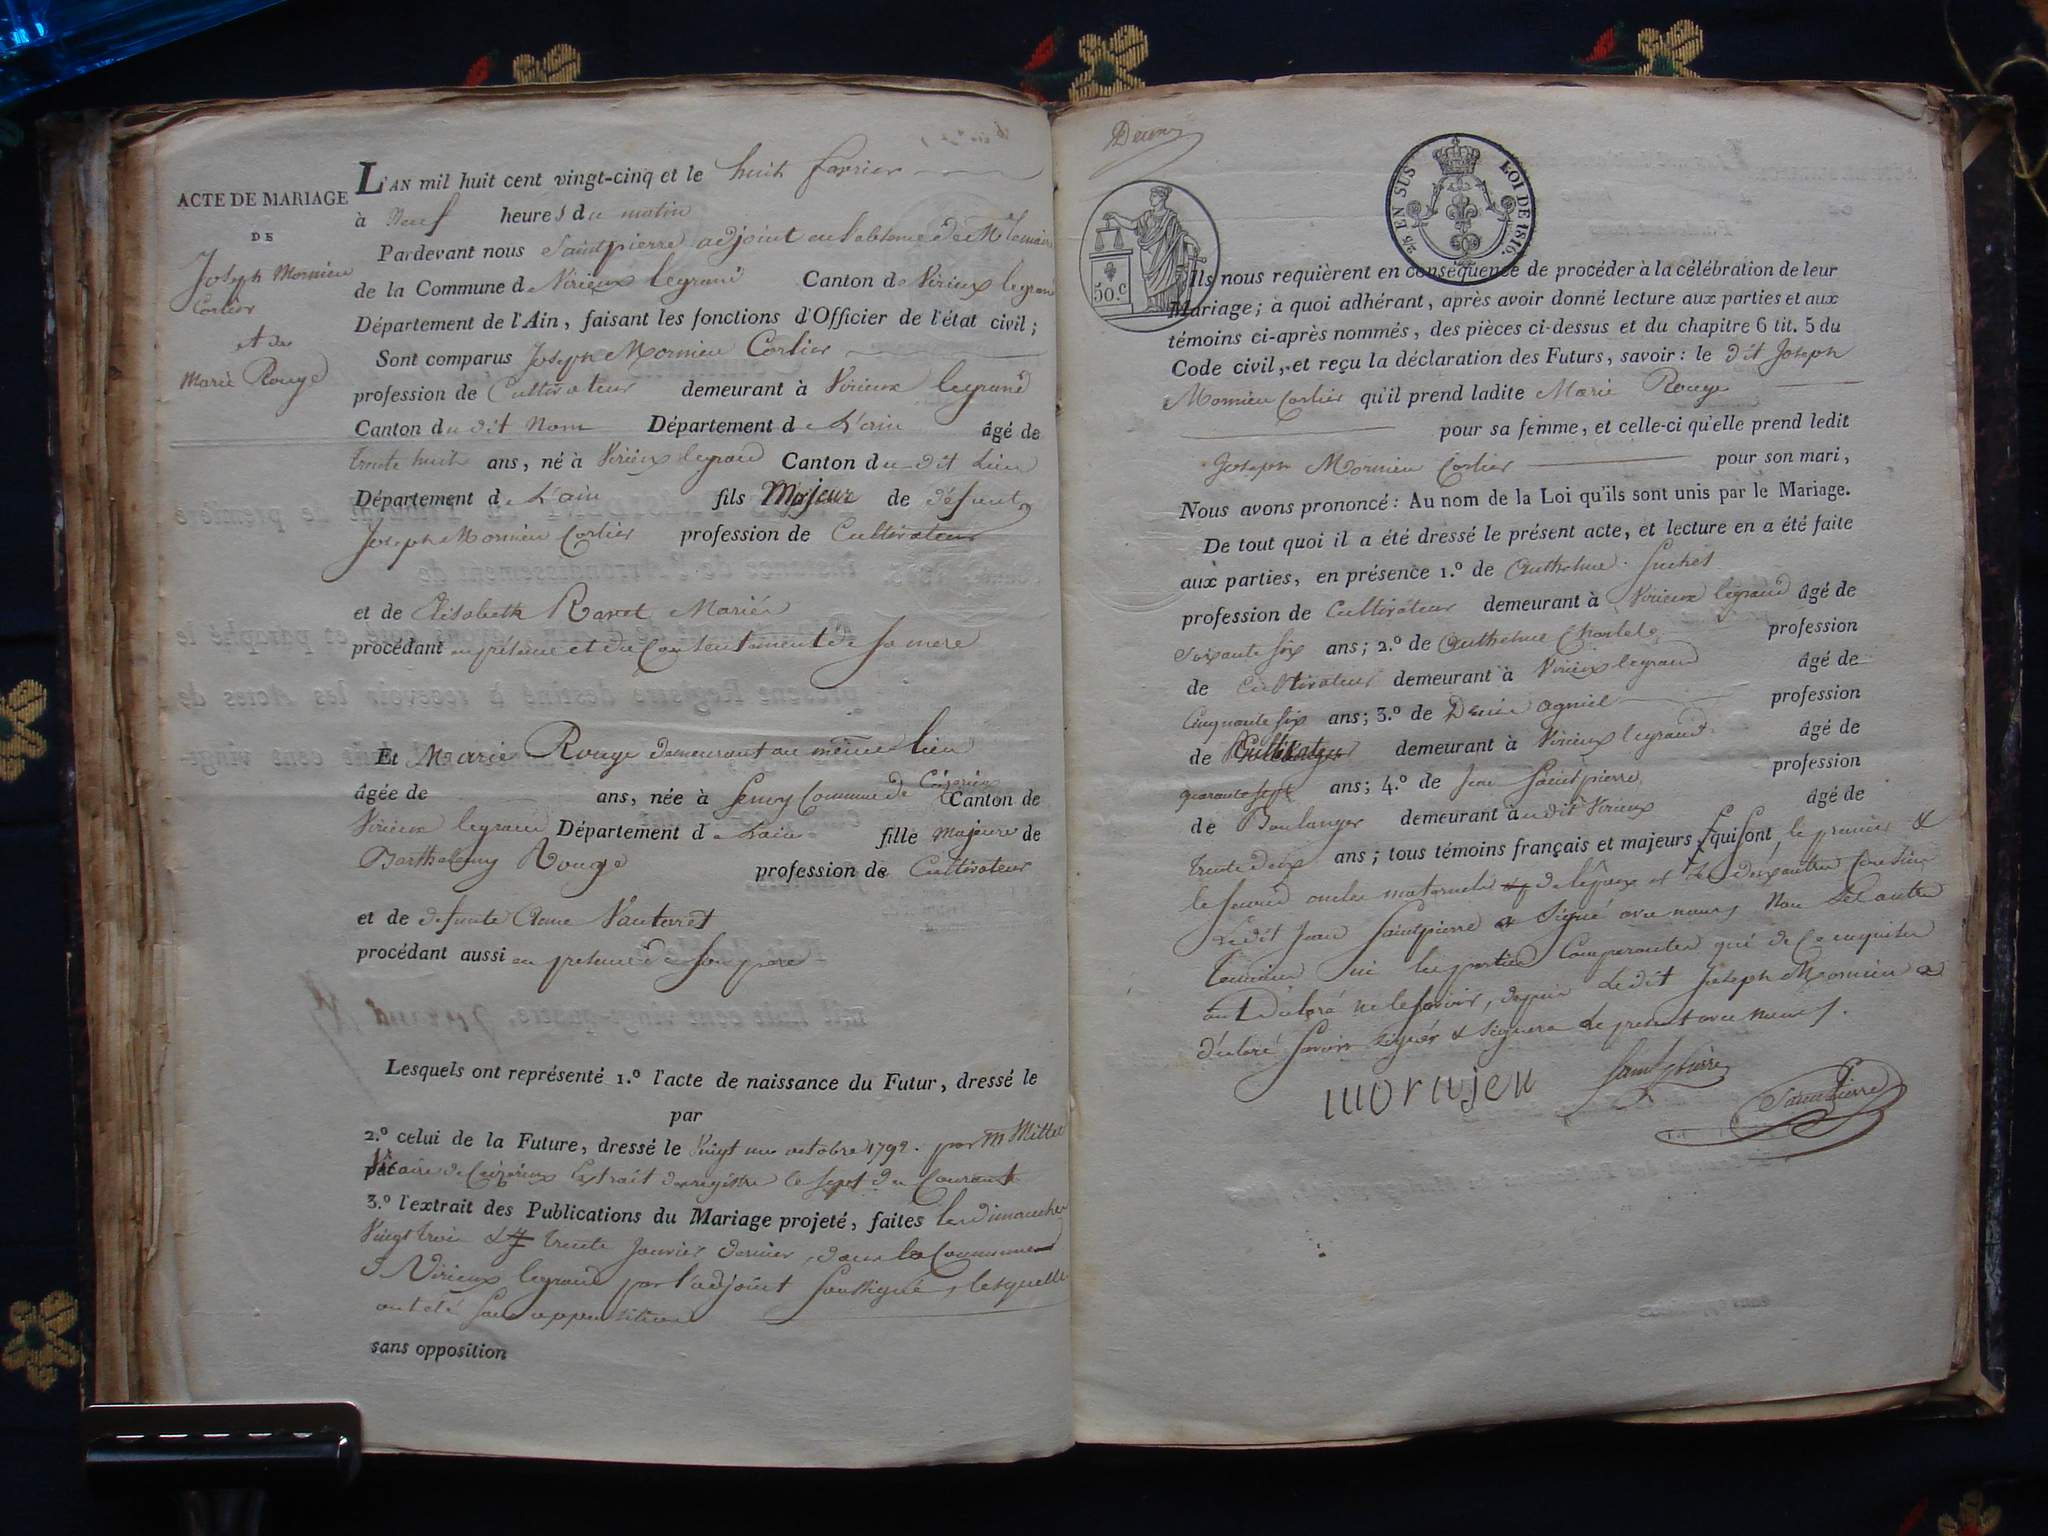 ACTE DE MARIAGE
DE
Joseph Mornieu
Corlier
et de
Marie Rouge
L'AN mil huit cent vingt-cinq et le huit fevrier
à Neuf heures du matin
Pardevant nous Saintpierre adjoint en l'absence de Mr le maire
de la Commune de Virieux legrand Canton de Virieux legrand
Département de l'Ain, faisant les fonctions d'Officier de l'état civil;
Sont comparus Joseph Mornieu Corlier
profession de Cultivateur demeurant à Virieux legrand
Canton du dit Nom Département de L'ain âgé de
trente huit ans, né à Virieux legrand Canton du dit Lieu
Département de L'ain fils Majeur de défunt
Joseph Mornieu Corlier profession de Cultivateur
et de Elisabeth Ravet Mariés
procédant en présence et du Contentement de sa mere
Et Marie Rouge demeurant au même lieu
âgée de ans, née à Commune de Ceizerieux Canton de
Virieux legrand Département de Lain fille majeure de
Barthelemy Rouge profession de Cultivateur
et de defunte Anne Vauterret
procédant aussi en presence de Son pere
Lesquels ont représenté 1.º l'acte de naissance du Futur, dressé le
par
2.º celui de la Future, dressé le Vingt un octobre 1792. par m Millet
par Vicaire de Ceizerieux Extrait du registre le Sept du Courant
3.º l'extrait des Publications du Mariage projeté, faites les dimanches
Vingt trois & trente Janvier dernier, dans la Commune
d Virieux legrand par l'adjoint Soussigné, lesquelles
ont été Sans opposition
sans opposition
Deux
50.C
25 EN SUS LOI DE 1816.
Ils nous requièrent en conséquence de procéder à la célébration de leur
Mariage; à quoi adhérant, après avoir donné lecture aux parties et aux
témoins ci-après nommés, des pièces ci-dessus et du chapitre 6 tit. 5 du
Code civil, et reçu la déclaration des Futurs, savoir: le dit Joseph
Mornieu Corlier qu'il prend ladite Marie Rouge
pour sa femme, et celle-ci qu'elle prend ledit
Joseph Mornieu Corlier pour son mari,
Nous avons prononcé: Au nom de la Loi qu'ils sont unis par le Mariage.
De tout quoi il a été dressé le présent acte, et lecture en a été faite
aux parties, en présence 1.º de Anthelme Suchet
profession de Cultivateur demeurant à Virieux legrand âgé de
Soixante six ans; 2.º de Anthelme profession
de Cultivateur demeurant à Virieux legrand âgé de
Cinquante six ans; 3.º de Denis agniel profession
de Cultivateur demeurant à Virieux legrand âgé de
quarante sept ans; 4.º de Jean Saintpierre profession
de Boulanger demeurant au dit Virieux âgé de
trente deux ans; tous témoins français et majeurs qui sont, le premier &
le Second oncles maternels de l'époux et les deux autres Cousins
Le dit Jean Saintpierre a Signé avec nous, Non Les autres
temoins ni les parties Comparantes qui de Ce enquises
ont Déclaré ne le Savoir, depuis Ledit Joseph Mornieu a
déclaré Savoir Signer & Signera le present avec nous.
mornjeu Saintpierre Saintpierre